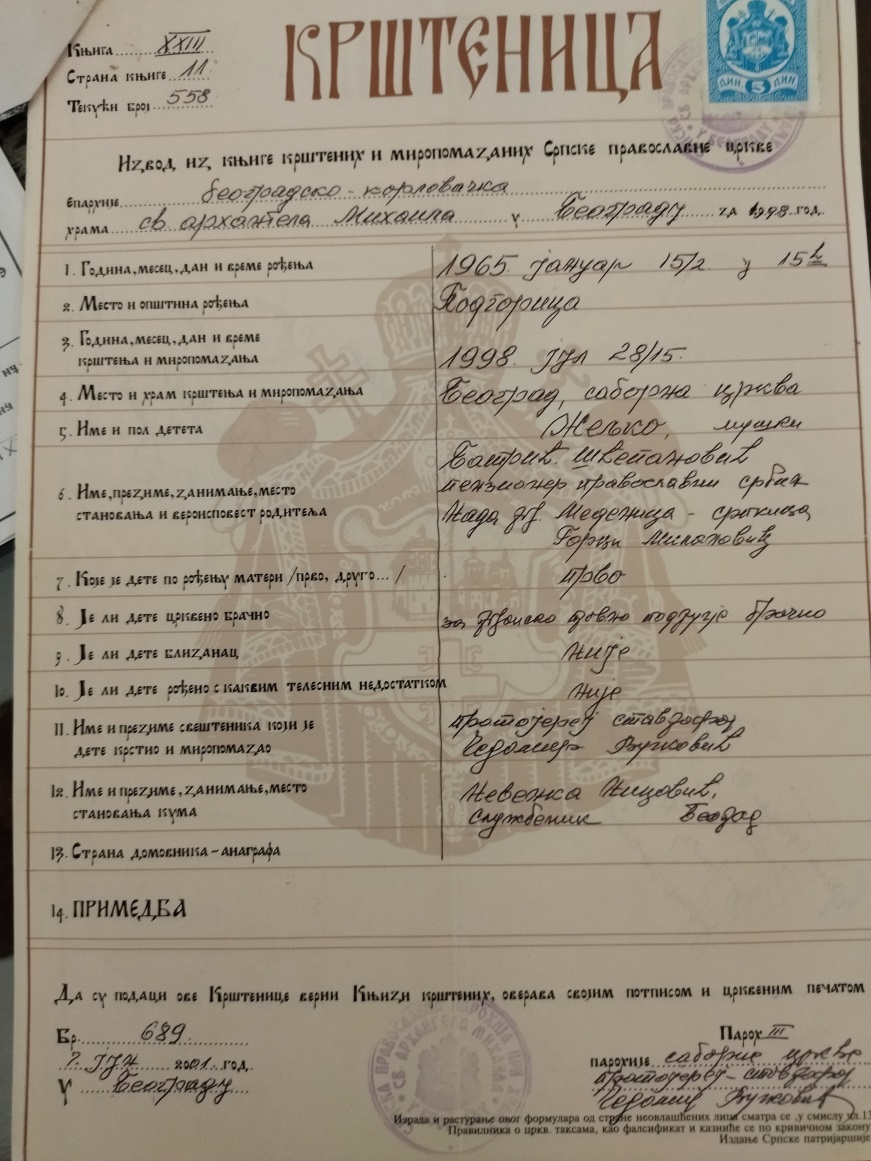 КРШТЕНИЦА
Књига XXIII
Страна књиге 11
Текући број 558
ДИН 5 ДИН
Извод из књиге крштених и миропомазаних Српске православне цркве
епархије београдско-карловачка
храма св архангела Михаила у Београду за 1998. год.
1. Година, месец, дан и време рођења 1965. јануар 15/2. у 15 h
2. Место и општина рођења Подгорица
3. Година, месец, дан и време
крштења и миропомазања 1998. јул 28/15.
4. Место и храм крштења и миропомазања Београд, саборна црква
5. Име и пол детета Жељко, мушки
6. Име, презиме, занимање, место
становања и вероисповест родитеља
Батрић
пензионер православни србин
Нада Меденица - српкиња
Горњи Милановац
7. Које је дете по рођењу матери /прво, друго... / прво
8. Је ли дете црквено брачно брачно
9. Је ли дете близанац није
10. Је ли дете рођено с каквим телесним недостатком није
11. Име и презиме свештеника који је
дете крстио и миропомазао
протојереј ставрофор
Чедомир Вучковић
12. Име и презиме, занимање, место
становања кума
Невенка
службеник Београд
13. Страна домовника-анаграфа
14. ПРИМЕДБА
Да су подаци ове Крштенице верни Књизи крштених, оверава својим потписом и црквеним печатом
Бр. 689
7. јун 2001. год.
У Београду
Парох III
парохије саборне цркве
протојереј-ставрофор
Чедомир Вучковић
Израда и растурање овог формулара од стране неовлашћених лица сматра се ,у смислу чл.13
Правилника о цркв. таксама, као фалсификат и казниће се по кривичном закону
Издање Српске патријаршије